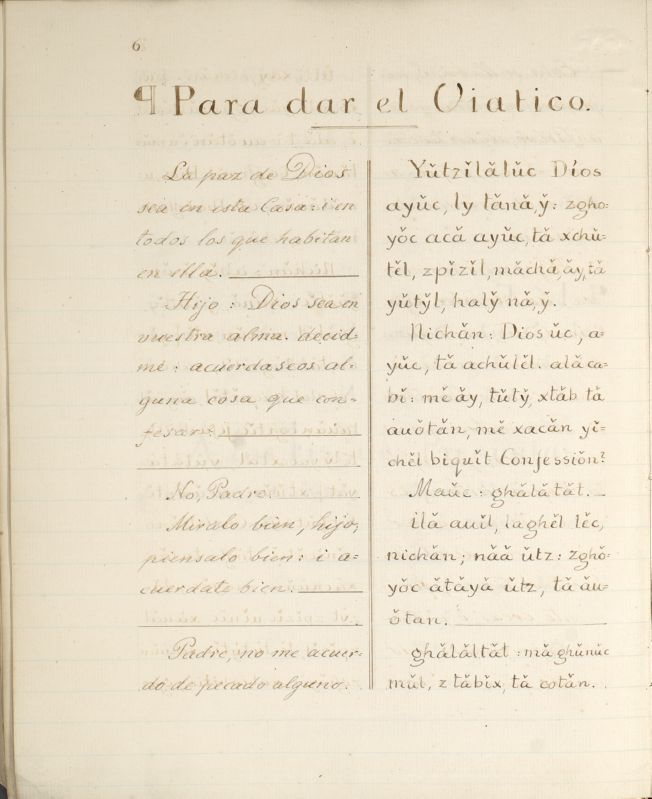 6
¶ Para dar el Viatico.
La paz de Dios
sea en esta Casa: i en
todos los que habitan
en ella.
Hijo: Dios sea en
vuestra alma. decid-
me: acuerdaseos al-
guna cosa que con-
fesar?
No, Padre.
Miralo bien, hijo,
piensalo bien: i a-
cuerdate bien.
Padre, no me acuer-
do de pecado alguno.
Yŭtzĭlălŭc Díos
ayŭc, ly tănă, y̆: zgho-
yŏc acă ayŭc, tă xchŭ-
tĕl, zpĭzĭl, măchă ăy, tă
yŭty̆l, haly̆ nă, y̆.
Nichăn: Dios ŭc, a-
yŭc, tă achŭlĕl. ală ca-
bĭ: mĕ ăy, tŭty̆, xtăb tă
auŏtăn, mĕ xacăn yĭ-
chĕl biquĭt Confessiŏn?
Maŭc: ghălătăt.
ĭlă auĭl, laghĕl lĕc,
nichăn; năă ŭtz: zghŏ-
yŏc ătăyă ŭtz, tă ău-
ŏtan.
ghălăltăt: mă ghŭnŭc
mŭl, z tăbĭx, tă cotăn.